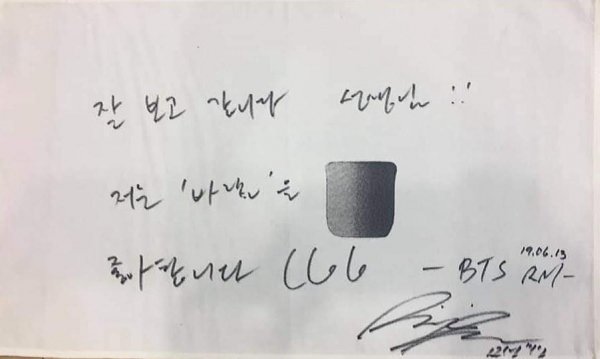 잘 보고 갑니다 선생님 ::
저는 '바람'을
좋아합니다 - BTS RM-
19.06.13